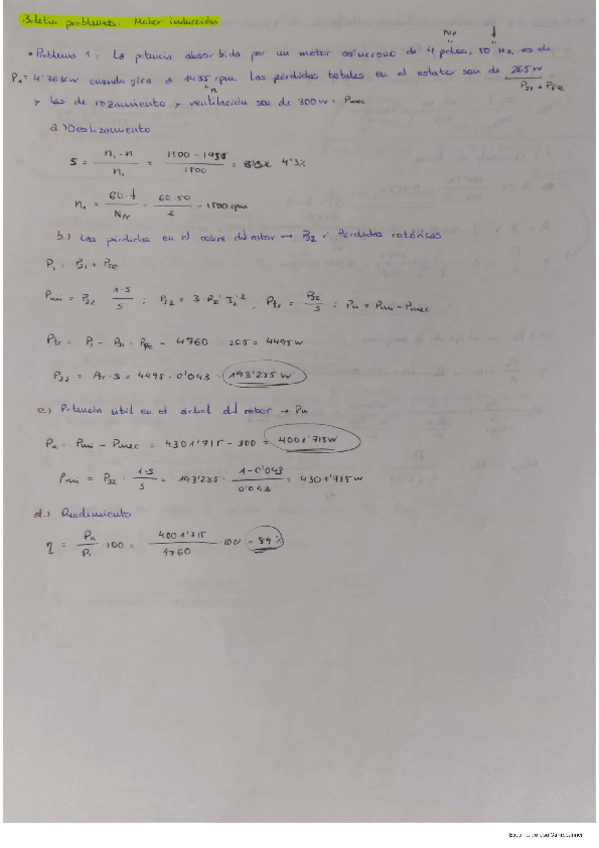 Boletín problemas: Motor inducción
• Problema 1: La potencia absorbida por un motor asíncrono de 4 polos, 50 Hz, es de
Np f
P₁ = 4'76 kW cuando gira a 1435 rpm. Las pérdidas totales en el estator son de 265 W
n PJ1 + PFe
y las de rozamiento y ventilación son de 300 W = Pmec
a.) Deslizamiento
S = n₁ - n / n₁ = 1500 - 1435 / 1500 = 4'3%
n₁ = 60·f / Np = 60·50 / 2 = 1500 rpm
b.) Las pérdidas en el cobre del rotor → PJ2 : Pérdidas rotóricas
P₁ = PJ1 + PFe
Pmi = PJ2 1-S / S ; PJ2 = 3·R2' I2'² , Ptr = PJ2 / S ; Pu = Pmi - Pmec
Ptr = P₁ - PJ1 - PFe = 4760 - 265 = 4495 W
PJ2 = Ptr · S = 4495 · 0'043 = 193'285 W
c.) Potencia útil en el árbol del motor → Pu
Pu = Pmi - Pmec = 4301'715 - 300 = 4001'715 W
Pmi = PJ2 · 1-S / S = 193'285 · 1-0'043 / 0'043 = 4301'715 W
d.) Rendimiento
η = Pu / P₁ · 100 = 4001'715 / 4760 · 100 = 84%